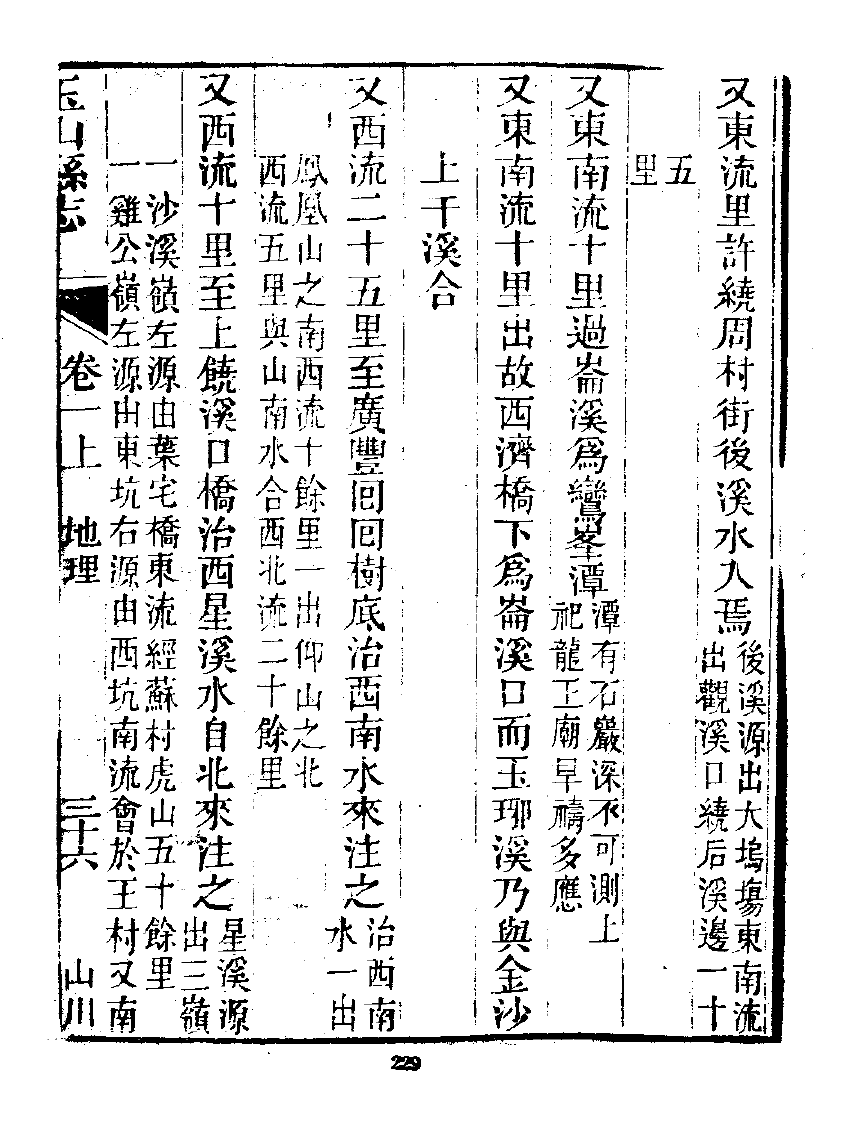 又東流里許繞周村街後溪水入焉
後溪源出大塢塲東南流
出觀溪口繞后溪邊一十
五
里
又東南流十里過崙溪爲鸞峯潭
潭有石巖深不可測上
祀龍王廟旱禱多應
又東南流十里出故西濟橋下爲崙溪口而玉琊溪乃與金沙
上干溪合
又西流二十五里至廣豐囘囘樹底治西南水來注之
治西南
水一出
鳳凰山之南西流十餘里一出仰山之北
西流五里與山南水合西北流二十餘里
又西流十里至上饒溪口橋治西星溪水自北來注之
星溪源
出三嶺
一沙溪嶺左源由葉宅橋東流經蘇村虎山五十餘里
一雞公嶺左源由東坑右源由西坑南流會於王村又南
玉山縣志
卷一上
地理
三十六
山川
229